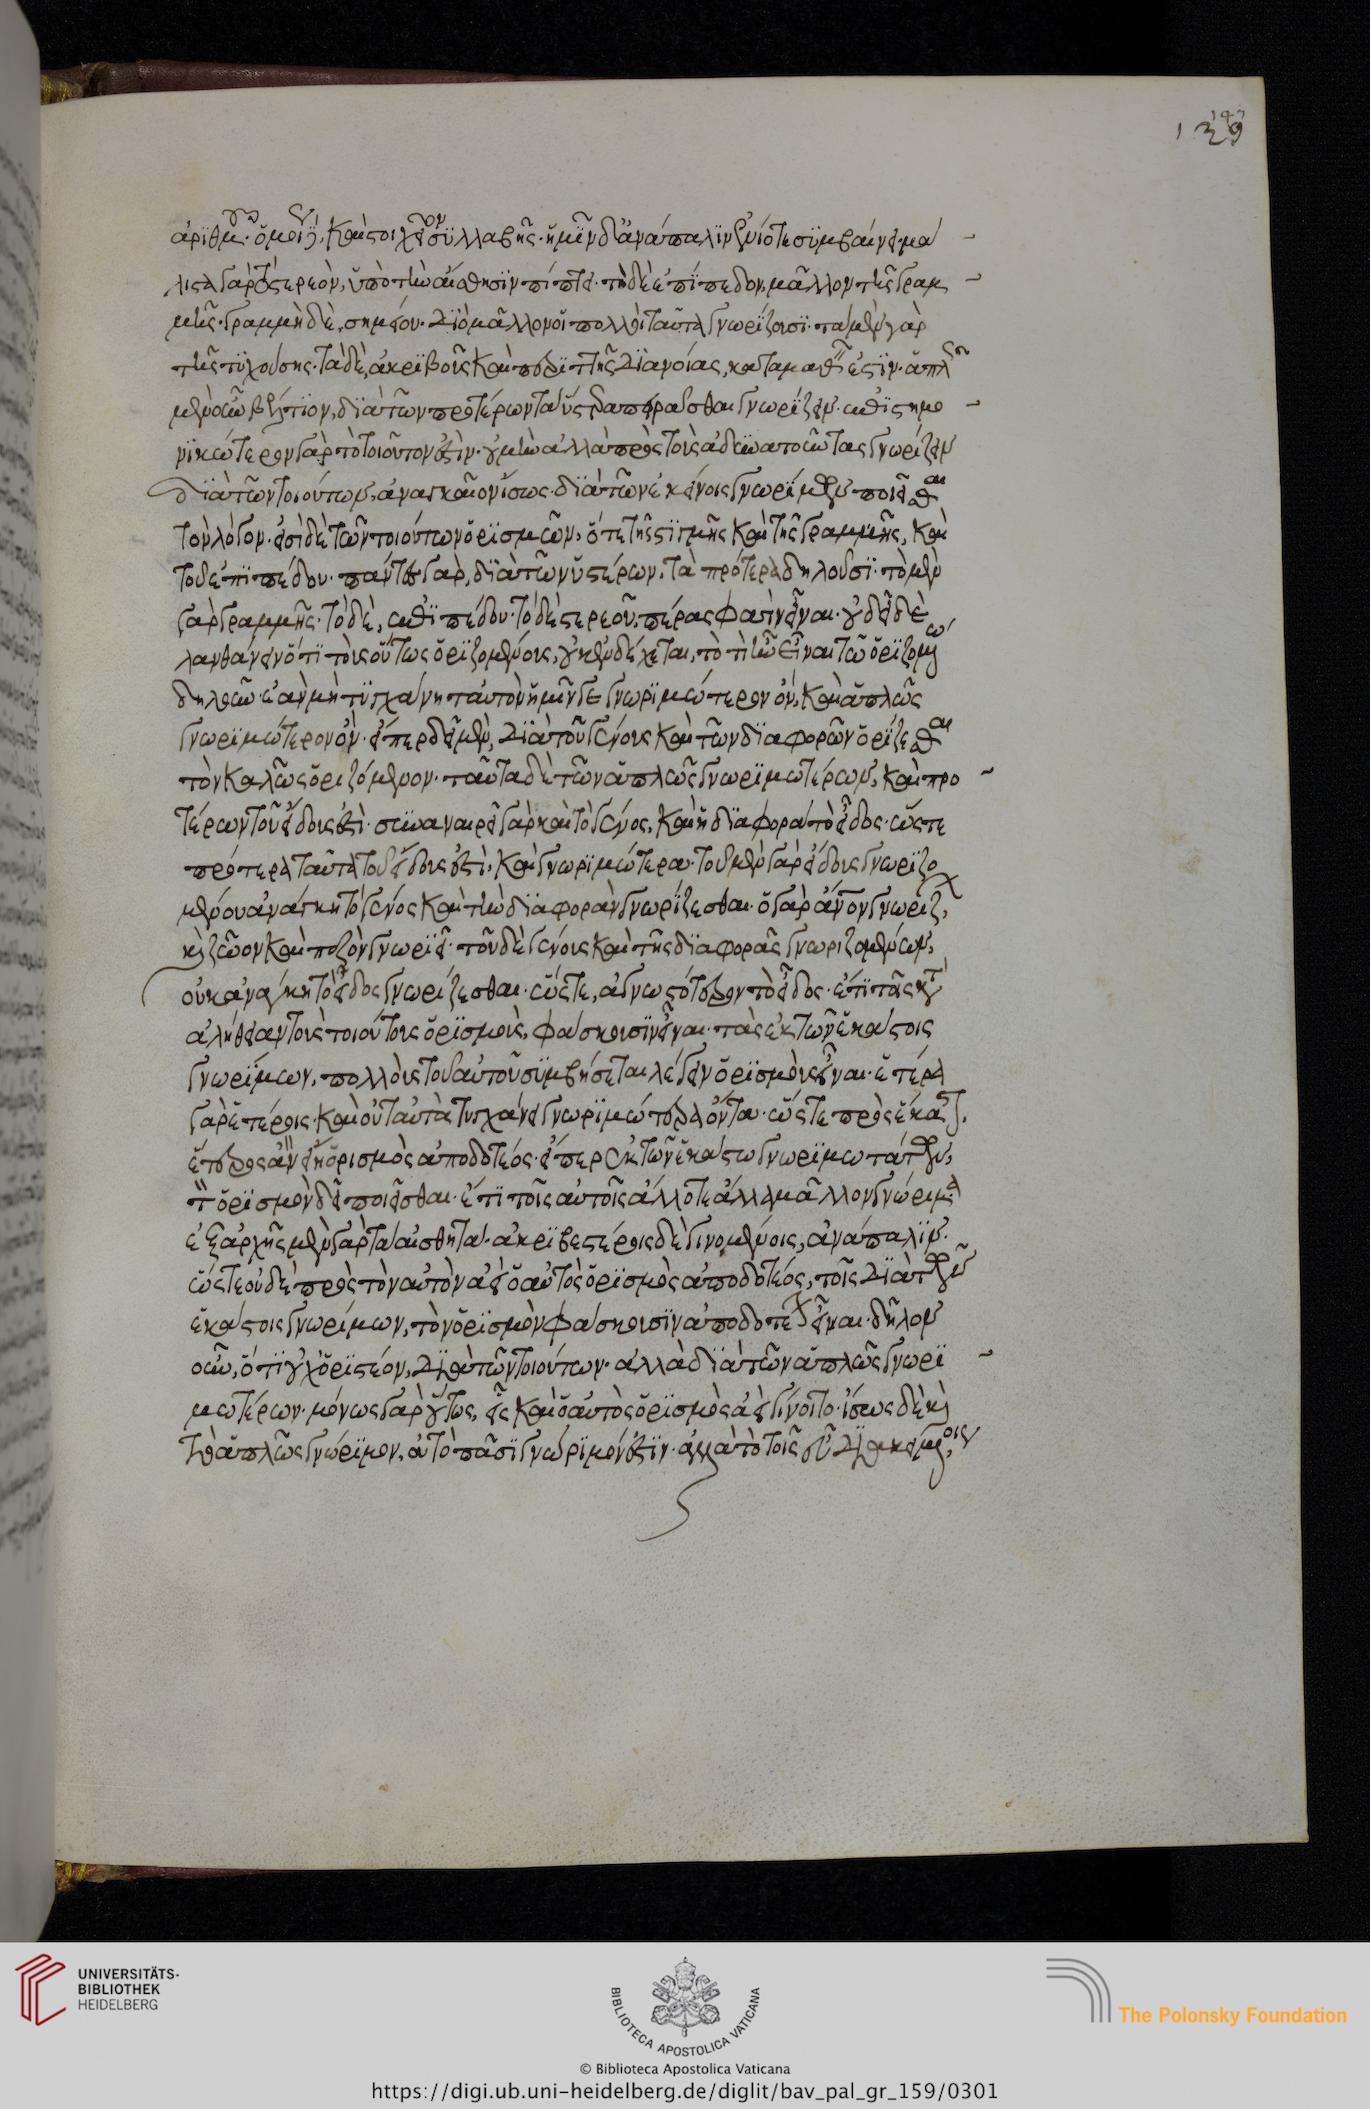 ἀριθμοῦ. ὁμοίως δὲ καὶ στοιχεῖον συλλαβῆς. ἡμῖν δ' ἀνάπαλιν ἐνίοτε συμβαίνει. μά
λιστα γὰρ τὸ στερεὸν, ὑπὸ τὴν αἴσθησιν πίπτει. τὸ δὲ ἐπίπεδον, μᾶλλον τῆς γραμ
μῆς. γραμμὴ δὲ, σημείου. διὸ μᾶλλον οἱ πολλοὶ ταῦτα γνωρίζουσι. τὰ μὲν γὰρ
τῆς τυχούσης. τὰ δὲ, ἀκριβοῦς καὶ περιττῆς διανοίας, καταμαθεῖν ἐστίν. ἁπλῶς
μὲν οὖν βέλτιον, διὰ τῶν προτέρων τὰ ὕστερα πειρᾶσθαι γνωρίζειν. ἐπιστημο
νικώτερον γὰρ τὸ τοιοῦτον ἐστὶν. οὐ μὴν ἀλλὰ πρὸς τοὺς ἀδυνατοῦντας γνωρίζειν
διὰ τῶν τοιούτων, ἀναγκαῖον ἴσως. διὰ τῶν ἐκείνοις γνωρίμων ποιεῖσθαι
τὸν λόγον. εἰσὶ δὲ τῶν τοιούτων ὁρισμῶν, ὅτε τῆς στιγμῆς καὶ τῆς γραμμῆς, καὶ
τοῦ ἐπιπέδου. πάντες γὰρ, διὰ τῶν ὑστέρων, τὰ πρότερα δηλοῦσι. τὸ μὲν
γὰρ γραμμῆς. τὸ δὲ, ἐπιπέδου. τὸ δὲ στερεοῦ, πέρας φασὶν εἶναι. οὐ δεῖ δὲ
λανθάνειν ὅτι τοὺς οὕτως ὁριζομένους, οὐκ ἐνδέχεται, τὸ τί ἦν εἶναι τῶ ὁριζομένω
δηλοῦν ἐὰν μὴ τυγχάνη ταὐτὸν ἡμῖν τε γνωριμώτερον ὂν, καὶ ἁπλῶς
γνωριμώτερον ὂν. εἴπερ δεῖ μὲν, διὰ τοῦ γένους καὶ τῶν διαφορῶν ὁρίζεσθαι
τὸν καλῶς ὁριζόμενον. ταῦτα δὲ τῶν ἁπλῶς γνωριμωτέρων, καὶ προ
τέρων τοῦ εἴδους ἐστὶ. συναναιρεῖ γὰρ καὶ τὸ γένος, καὶ ἡ διαφορὰ τὸ εἶδος. ὥστε
πρότερα ταῦτα τοῦ εἴδους ἐστὶ. καὶ γνωριμώτερα. τοῦ μὲν γὰρ εἴδους γνωριζο
μένου ἀνάγκη τὸ γένος καὶ τὴν διαφορὰν γνωρίζεσθαι. ὁ γὰρ ἄνθρωπον γνωρίζων,
καὶ ζῶον καὶ πεζὸν γνωρίζει. τοῦ δὲ γένους καὶ τῆς διαφορᾶς γνωριζομένων,
οὐκ ἀνάγκη τὸ εἶδος γνωρίζεσθαι. ὥστε, ἀγνωστότερον τὸ εἶδος. ἔτι τοῖς κατ'
ἀλήθειαν τοὺς τοιούτους ὁρισμοὺς, φάσκουσιν εἶναι. τοὺς ἐκ τῶν ἑκάστοις
γνωρίμων, πολλοὺς τοῦ αὐτοῦ συμβήσεται λέγειν ὁρισμοὺς εἶναι. ἕτερα
γὰρ ἑτέροις. καὶ οὐ ταὐτὰ τυγχάνει γνωριμώτερα ὄντα. ὥστε πρὸς ἕκαστον,
ἕτερος ἂν εἴη ὁρισμὸς ἀποδοτέος. εἴπερ ἐκ τῶν ἑκάστω γνωριμωτάτων,
τὸν ὁρισμὸν δεῖ ποιεῖσθαι. ἔτι τοῖς αὐτοῖς ἄλλοτε ἄλλα μᾶλλον γνώριμα
ἐξ ἀρχῆς μὲν γὰρ τὰ αἰσθητά. ἀκριβεστέροις δὲ γινομένοις, ἀνάπαλιν.
ὥστε οὐδὲ πρὸς τὸν αὐτὸν ἀεὶ ὁ αὐτὸς ὁρισμὸς ἀποδοτέος, τοῖς διὰ τῶν
ἑκάστοις γνωρίμων, τὸν ὁρισμὸν φάσκουσιν ἀποδοτέον εἶναι. δῆλον
οὖν, ὅτι οὐχ ὁριστέον, διὰ τῶν τοιούτων. ἀλλὰ διὰ τῶν ἁπλῶς γνωρι
μωτέρων. μόνως γὰρ οὕτως, εἷς καὶ ὁ αὐτὸς ὁρισμὸς ἀεὶ γίνοιτο. ἴσως δὲ καὶ
τὸ ἁπλῶς γνώριμον, οὐ τὸ πᾶσι γνώριμόν ἐστιν. ἀλλὰ τὸ τοῖς εὖ διακειμένοις
UNIVERSITÄTS-
BIBLIOTHEK
HEIDELBERG
BIBLIOTECA APOSTOLICA VATICANA
The Polonsky Foundation
© Biblioteca Apostolica Vaticana
https://digi.ub.uni-heidelberg.de/diglit/bav_pal_gr_159/0301